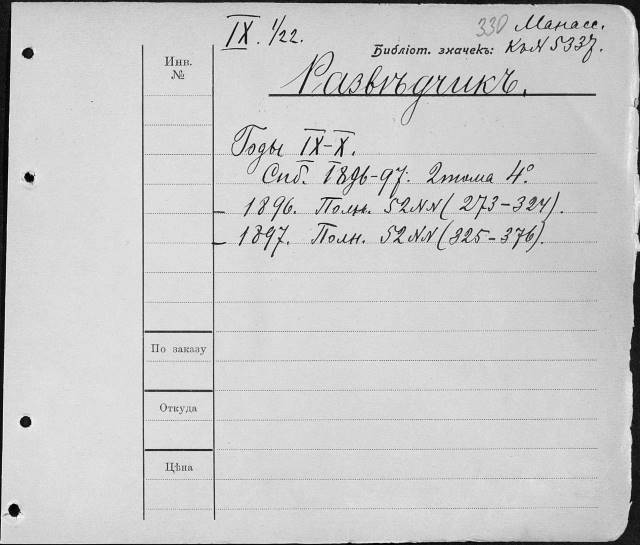 IX. 1/22.
330 Манасс.
Библіот. значекъ: КъN 5337.
Инв.
№
Развѣдчикъ.
Годы IX-X.
Спб. 1896-97. 2 тома 4°.
- 1896. Полн. 52NN (273-324).
- 1897. Полн. 52NN (325-376).
По заказу
Откуда
Цѣна